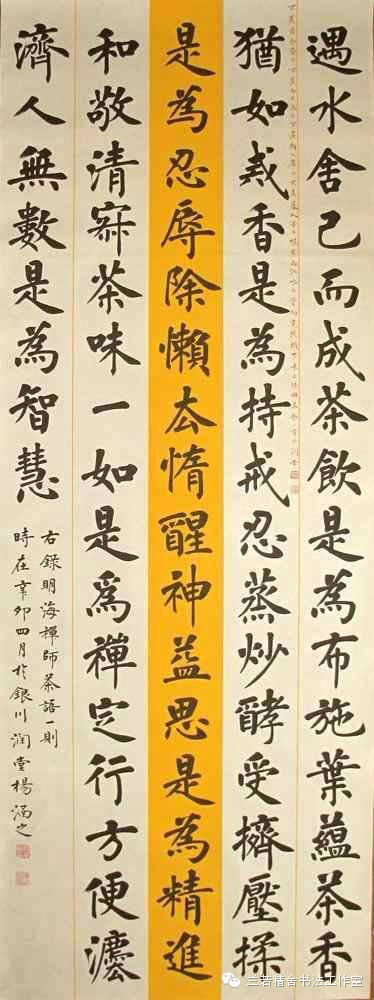 遇水舍己而成茶飲是為布施葉蘊茶香
猶如戒香是為持戒忍蒸炒酵受擠壓揉
是為忍辱除懶去惰醒神益思是為精進
和敬清寂茶味一如是爲禪定行方便灋
濟人無數是為智慧
右錄明海禪師茶語一則
時在辛卯四月於銀川潤堂楊涵之
兰若楷舍书法工作室